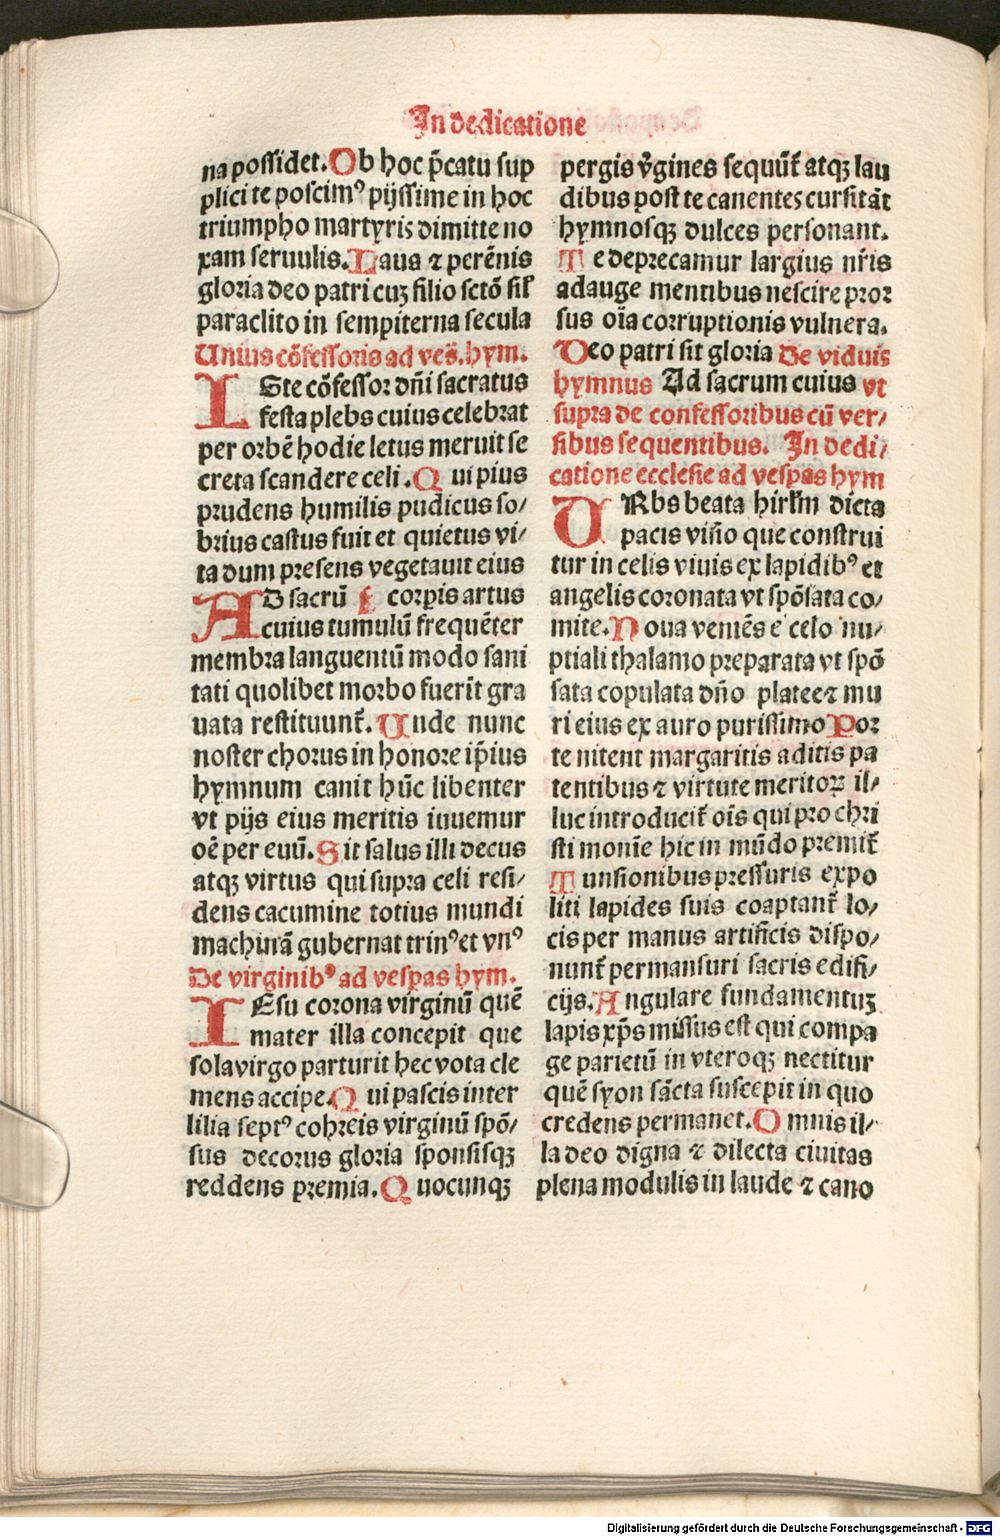 In dedicatione
na possidet. Ob hoc p̃catu sup
plici te poscimꝰ pijssime in hoc
triumpho martyris dimitte no
xam seruulis. Laus ⁊ perẽnis
gloria deo patri cuȝ filio sctõ sil̃
paraclito in sempiterna secula
Unius cõfessoris ad ves̃. hym.
ISte cõfessor dñi sacratus
festa plebs cuius celebrat
per orbẽ hodie letus meruit se
creta scandere celi. Qui pius
prudens humilis pudicus so/
brius castus fuit et quietus vi/
ta dum presens vegetauit eius
AD sacrũ corpis artus
cuius tumulũ frequẽter
membra languentũ modo sani
tati quolibet morbo fuerĩt gra
uata restituunt̃. Unde nunc
noster chorus in honore ip̃ius
hymnum canit hũc libenter
vt pijs eius meritis iuuemur
oẽ per euũ. Sit salus illi decus
atqȝ virtus qui supra celi resi/
dens cacumine totius mundi
machinã gubernat trinꝰ et vnꝰ
De virginibꝰ ad vespas hym.
IEsu corona virginũ quẽ
mater illa concepit que
sola virgo parturit hec vota cle
mens accipe. Qui pascis inter
lilia septꝰ cohreis virginũ spõ/
sus decorus gloria sponsisqȝ
reddens premia. Quocunqȝ
pergis ṽgines sequũt̃ atqȝ lau
dibus post te canentes cursitãt
hymnosqȝ dulces personant.
Te deprecamur largius nr̃is
adauge mentibus nescire pror
sus oĩa corruptionis vulnera.
Deo patri sit gloria De viduis
hymnus Ad sacrum cuius vt
supra de confessoribus cũ ver/
sibus sequentibus. In dedi/
catione ecclesie ad vespas hym
URbs beata hirl̃m dicta
pacis viño que construi
tur in celis viuis ex lapidibꝰ et
angelis coronata vt spõsata co/
mite. Noua veniẽs e celo nu/
ptiali thalamo preparata vt spõ
sata copulata dño platee ⁊ mu
ri eius ex auro purissimo Por
te nitent margaritis aditis pa
tentibus ⁊ virtute meritoꝝ il/
luc introducit̃ oĩs qui pro chri
sti monĩe hic in mũdo premit̃
Tunsionibus pressuris expo
liti lapides suis coaptant̃ lo/
cis per manus artificis dispo/
nunt̃ permansuri sacris edifi/
cijs. Angulare fundamentuȝ
lapis xp̃s missus est qui compa
ge parietũ in vteroqȝ nectitur
quẽ syon sãcta suscepit in quo
credens permanet. Omnis il/
la deo digna ⁊ dilecta ciuitas
plena modulis in laude ⁊ cano
Digitalisierung gefördert durch die Deutsche Forschungsgemeinschaft - DFG